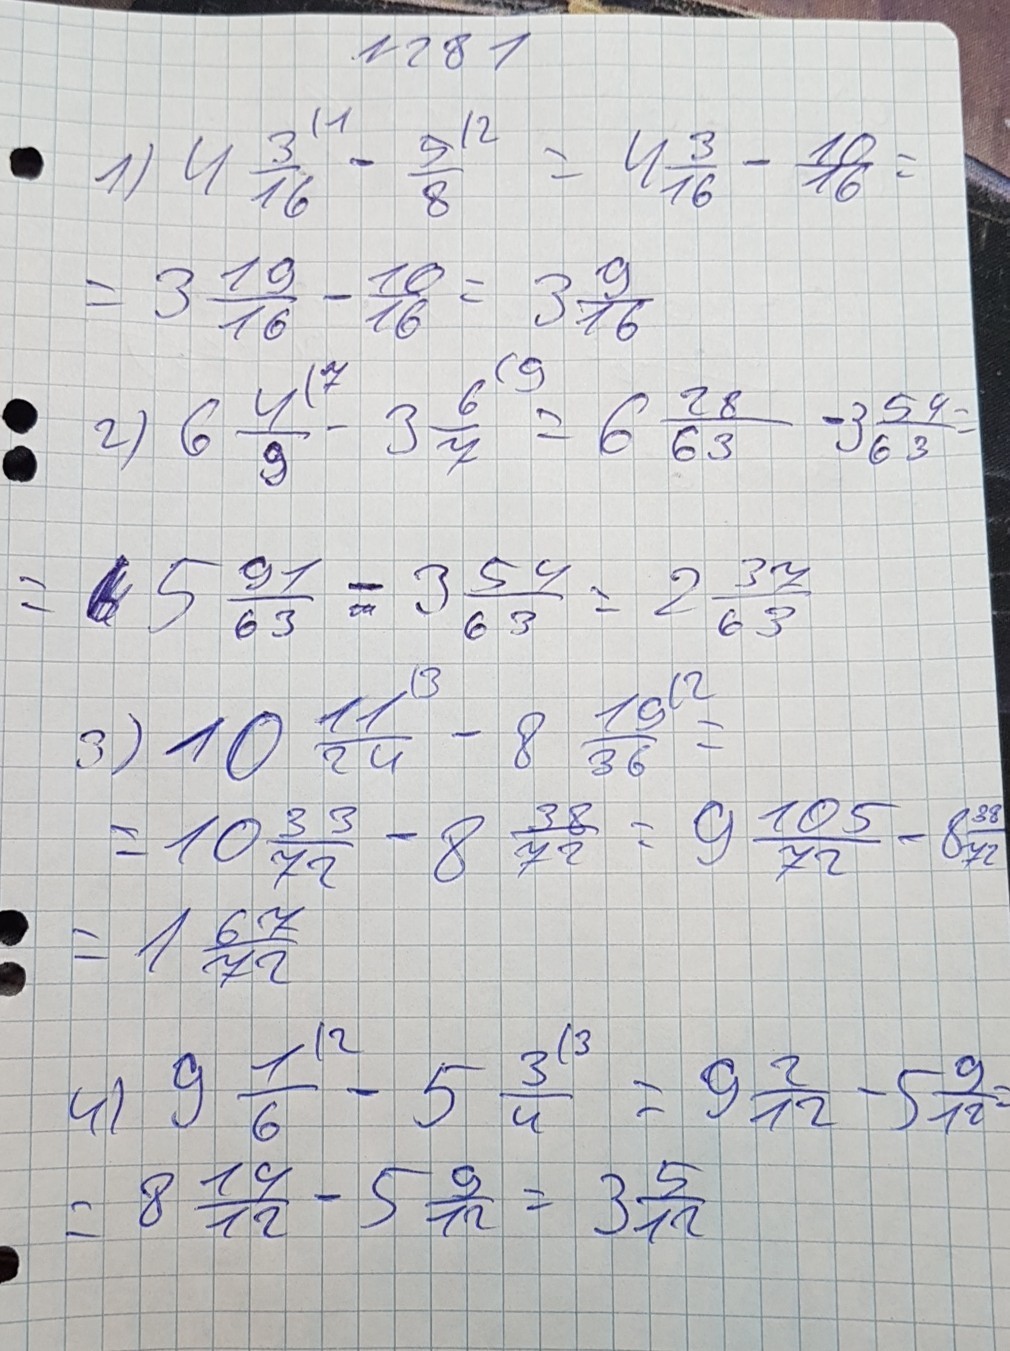 1281
1) 4 3/16 (1 - 5/8 (2 = 4 3/16 - 10/16 =
= 3 19/16 - 10/16 = 3 9/16
2) 6 4/9 (7 - 3 6/7 (9 = 6 28/63 - 3 54/63 =
= 5 91/63 - 3 54/63 = 2 37/63
3) 10 11/24 (3 - 8 19/36 (2 =
= 10 33/72 - 8 38/72 = 9 105/72 - 8 38/72
= 1 67/72
4) 9 1/6 (2 - 5 3/4 (3 = 9 2/12 - 5 9/12 =
= 8 14/12 - 5 9/12 = 3 5/12